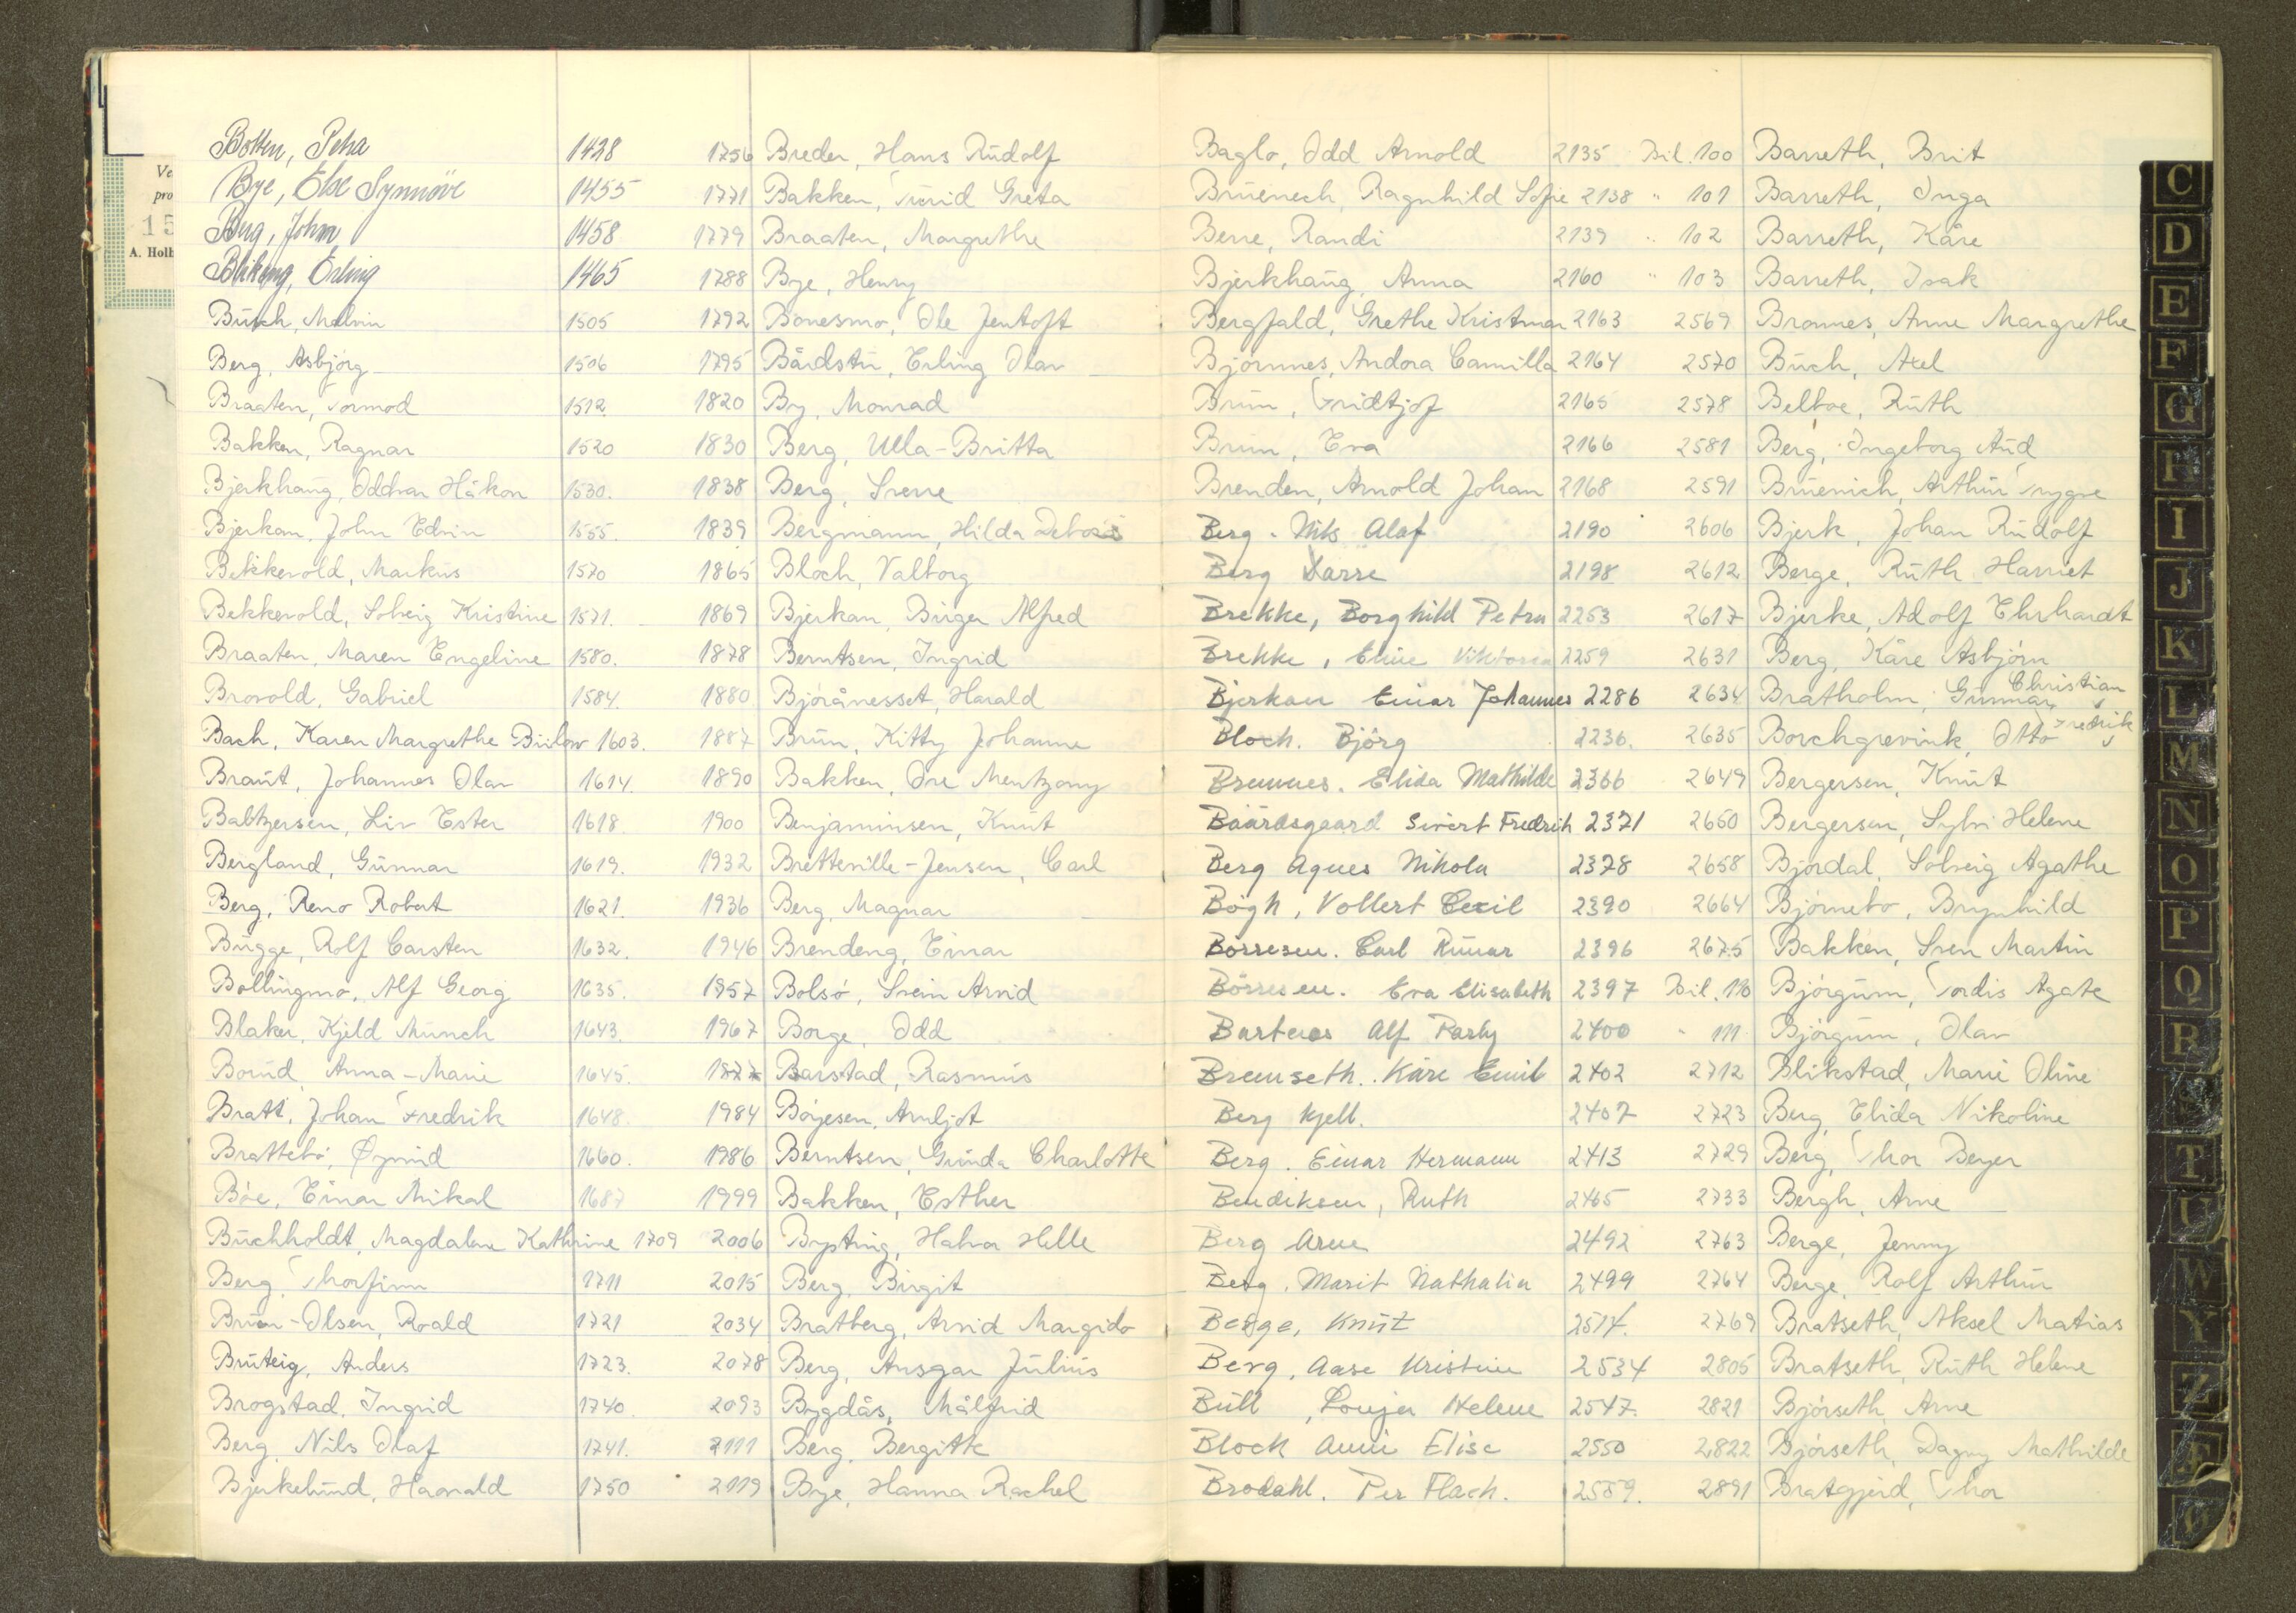 Botten, Petra 1428
Bye, Else Synnöve 1455
Berg, John 1458
Blikeng, Erling 1465
Busch, Malvin 1505
Berg, Asbjørg 1506
Braaten, Tormod 1512.
Bakken, Ragnar 1520
Bjerkhaug, Oddvar Håkon 1530.
Bjerkan, John Edvin 1555.
Bekkevold, Markus 1570
Bekkevold, Solveig Kristine 1571.
Braaten, Maren Engeline 1580.
Brovold, Gabriel 1584.
Bach, Karen Margrethe Bülow 1603.
Braut, Johannes Olav 1614.
Baltzersen, Liv Ester 1618
Bergland, Gunnar 1619.
Berg, Reno Robert 1621.
Bugge, Rolf Carsten 1632.
Bollingmo, Alf Georg 1635.
Blaker, Kjeld Munch 1643.
Borud, Anna-Marie 1645.
Bratt, Johan Fredrik 1648.
Brattebö, Øyvind 1660.
Böe, Einar Mikal 1687
Buchholdt, Magdalene Kathrine 1709
Berg, Thorfinn 1711
Bruun-Olsen, Roald 1721
Bruteig, Anders 1723.
Brogstad, Ingrid 1740.
Berg, Nils Olaf 1741.
Bjerkelund, Haavald 1750
1756 Breder, Hans Rudolf
1771 Bakken, Turid Greta
1779 Braaten, Margrethe
1788 Bye, Henry
1792 Bonesmo, Ole Jentoft
1795 Bårdstu, Erling Olav
1820 By, Monrad
1830 Berg, Ulla-Britta
1838 Berg, Sverre
1839 Bergmann, Hilda
1865 Bloch, Valborg
1869 Bjerkan, Birger Alfred
1878 Berntsen, Ingrid
1880 Björånesset, Harald
1887 Brun, Kitty Johanne
1890 Bakken, Ove Mentzony
1900 Benjaminsen, Knut
1932 Bretteville-Jensen, Carl
1936 Berg, Magnar
1946 Brendeng, Einar
1957 Bolsö, Svein Arvid
1967 Borge, Odd
1877 Barstad, Rasmus
1984 Börjesen, Arnljot
1986 Berntsen, Gunda Charlotte
1999 Bakken, Esther
2006 Bysting, Halvor Helle
2015 Berg, Birgit
2034 Bratberg, Arvid Margido
2078 Berg, Ansgar Julius
2093 Bygdås, Målfrid
2111 Berg, Bergitte
2119 Bye, Hanna Rachel
Baglo, Odd Arnold 2135
Bruenech, Ragnhild Sofie 2138
Berre, Randi 2139
Bjerkhaug, Anna 2160
Bergfald, Grethe Kristmar 2163
Björnnes, Andora Camilla 2164
Brun, Fridtjof 2165
Brun, Eva 2166
Brenden, Arnold Johan 2168
Berg. Nils Olaf 2190
Berg Lasse 2198
Brekke, Borghild Petra 2253
Brekke, Eline Viktoria 2259
Bjerkan Einar Johannes 2286
Bloch. Björg 2236.
Bremnes. Elida Mathilde 2366
Baardsgaard Sivert Fredrik 2371
Berg Agnes Nikola 2378
Bögh, Vollert Cecil 2390
Börresen. Carl Runar 2396
Börresen. Eva Elisabeth 2397
Barteros Alf Parly 2400
Bremseth. Kåre Emil 2402
Berg Kjell. 2407
Berg. Einar Hermann 2413
Bendiksen, Ruth 2465
Berg Arne 2492
Berg. Marit Nathalia 2499
Berge, Knut 2514.
Berg, Aase Kristine 2534
Bull, Louise Helene 2547.
Block Anni Elise 2550
Brodahl. Per Flach. 2559.
Bil. 100 Barreth, Brit
" 101 Barreth, Inga
" 102 Barreth, Kåre
" 103 Barreth, Isak
2569 Bromnes, Anne Margrethe
2570 Buch, Axel
2578 Belboe, Ruth
2581 Berg, Ingeborg Aud
2591 Bruenich, Arthur Trygve
2606 Bjerk, Johan Rudolf
2612 Berge, Ruth Harriet
2617 Bjerke, Adolf Ehrhardt
2631 Berg, Kåre Asbjörn
2634 Bratholm, Gunnar Christian
2635 Borchgrevink, Otto Fredrik
2649 Bergersen, Knut
2650 Bergersen, Sylvi Helene
2658 Bjordal, Solveig Agathe
2664 Björnebo, Brynhild
2675 Bakken, Sven Martin
Bil. 110 Björgum, Tordis Agate
" 111 Björgum, Olav
2712 Blikstad, Marie Oline
2723 Berg, Elida Nikoline
2729 Berg, Thor Beyer
2733 Bergh, Arne
2763 Berge, Jenny
2764 Berge, Rolf Arthur
2769 Bratseth, Aksel Matias
2805 Bratseth, Ruth Helene
2821 Björseth, Arne
2822 Björseth, Dagny Mathilde
2891 Bratgjerd, Thor
Ve
pro
15
A. Holb
C
D
E
F
G
H
I
J
K
L
M
N
O
P
Q
R
S
T
U
W
Y
Z
Æ
Ø